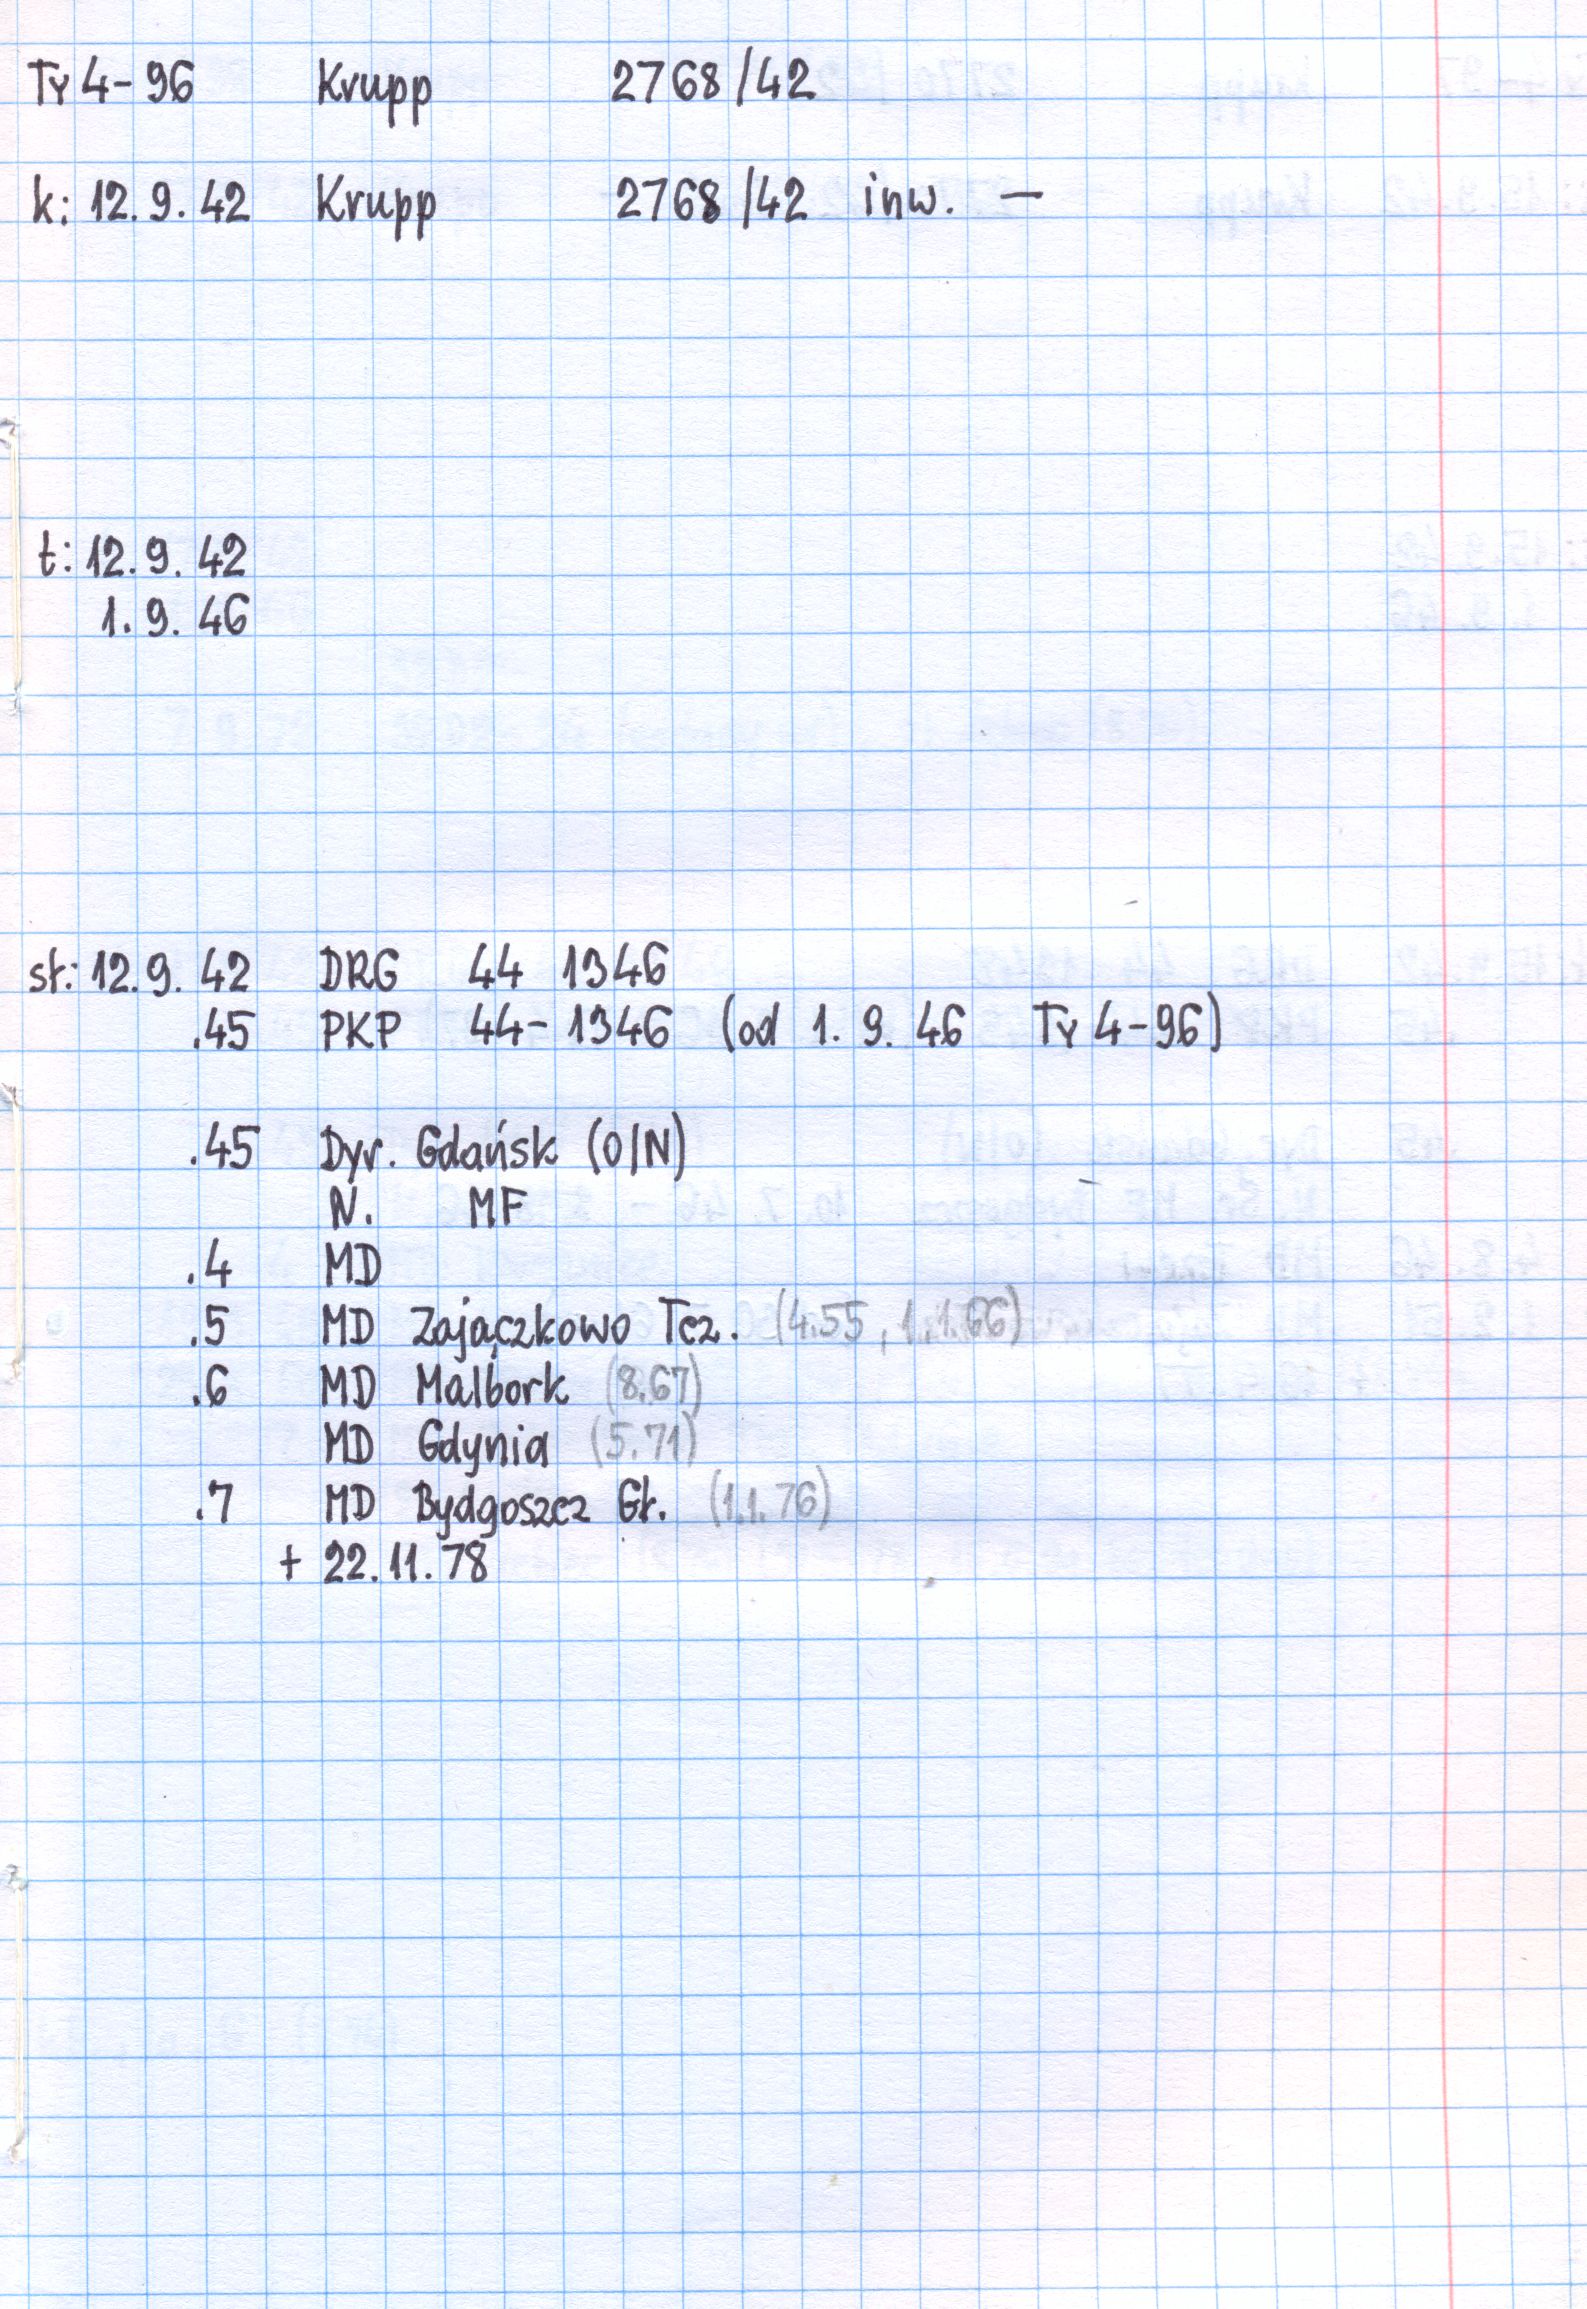 Ty 4-96 Krupp 2768/42
k: 12.9.42 Krupp 2768/42 inw. —
t: 12.9.42
1.9.46
st: 12.9.42 DRG 44 1346
.45 PKP 44-1346 (od 1.9.46 Ty 4-96)
.45 Dyr. Gdańsk (O/N)
N. MF
.4 MD
.5 MD Zajączkowo Tcz. (4.55, 1.1.66)
.6 MD Malbork (8.67)
MD Gdynia (5.71)
.7 MD Bydgoszcz Gł. (1.1.76)
+ 22.11.78